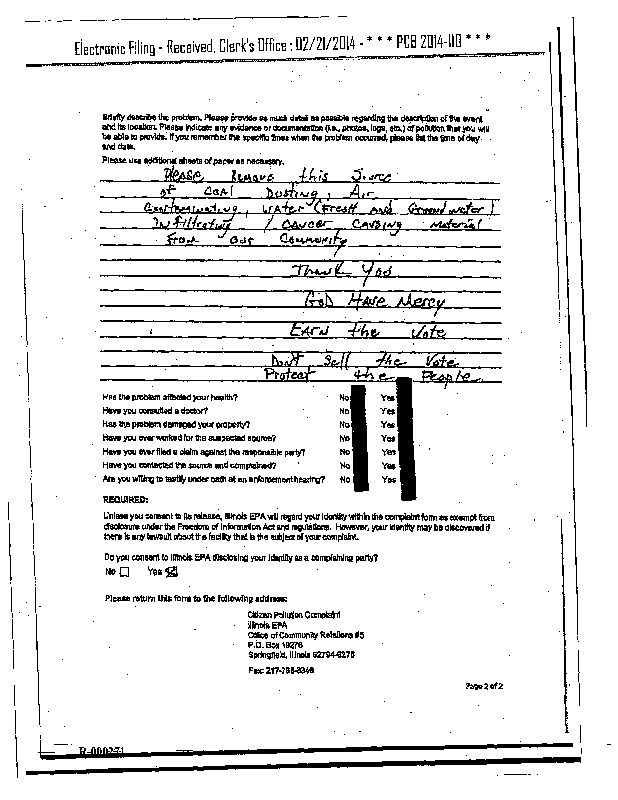 Electronic Filing - Received, Clerk's Office : 02/21/2014 - * * * PCB 2014-110 * * *
Briefly describe the problem. Please provide as much detail as possible regarding the description of the event
and its location. Please indicate any evidence or documentation (i.e., photos, logs, etc.) of pollution that you will
be able to provide. If you remember the specific times when the problem occurred, please list the time of day
and date.
Please use additional sheets of paper as necessary.
Please Remove this Source
of Coal Dusting, Air
Contaminating, Water (Fresh and Ground water)
Infiltrating / Cancer Causing Material
From our Community
Thank You
God Have Mercy
Earn the Vote
Don't Sell the Vote
Protect the People
Has the problem affected your health? No Yes
Have you consulted a doctor? No Yes
Has the problem damaged your property? No Yes
Have you ever worked for the suspected source? No Yes
Have you ever filed a claim against the responsible party? No Yes
Have you contacted the source and complained? No Yes
Are you willing to testify under oath at an enforcement hearing? No Yes
REQUIRED:
Unless you consent to its release, Illinois EPA will regard your identity within the complaint form as exempt from
disclosure under the Freedom of Information Act and regulations. However, your identity may be discovered if
there is any lawsuit about the facility that is the subject of your complaint.
Do you consent to Illinois EPA disclosing your identity as a complaining party?
No Yes
Please return this form to the following address:
Citizen Pollution Complaint
Illinois EPA
Office of Community Relations #5
P.O. Box 19276
Springfield, Illinois 62794-9276
Fax: 217-785-8346
Page 2 of 2
R-000271